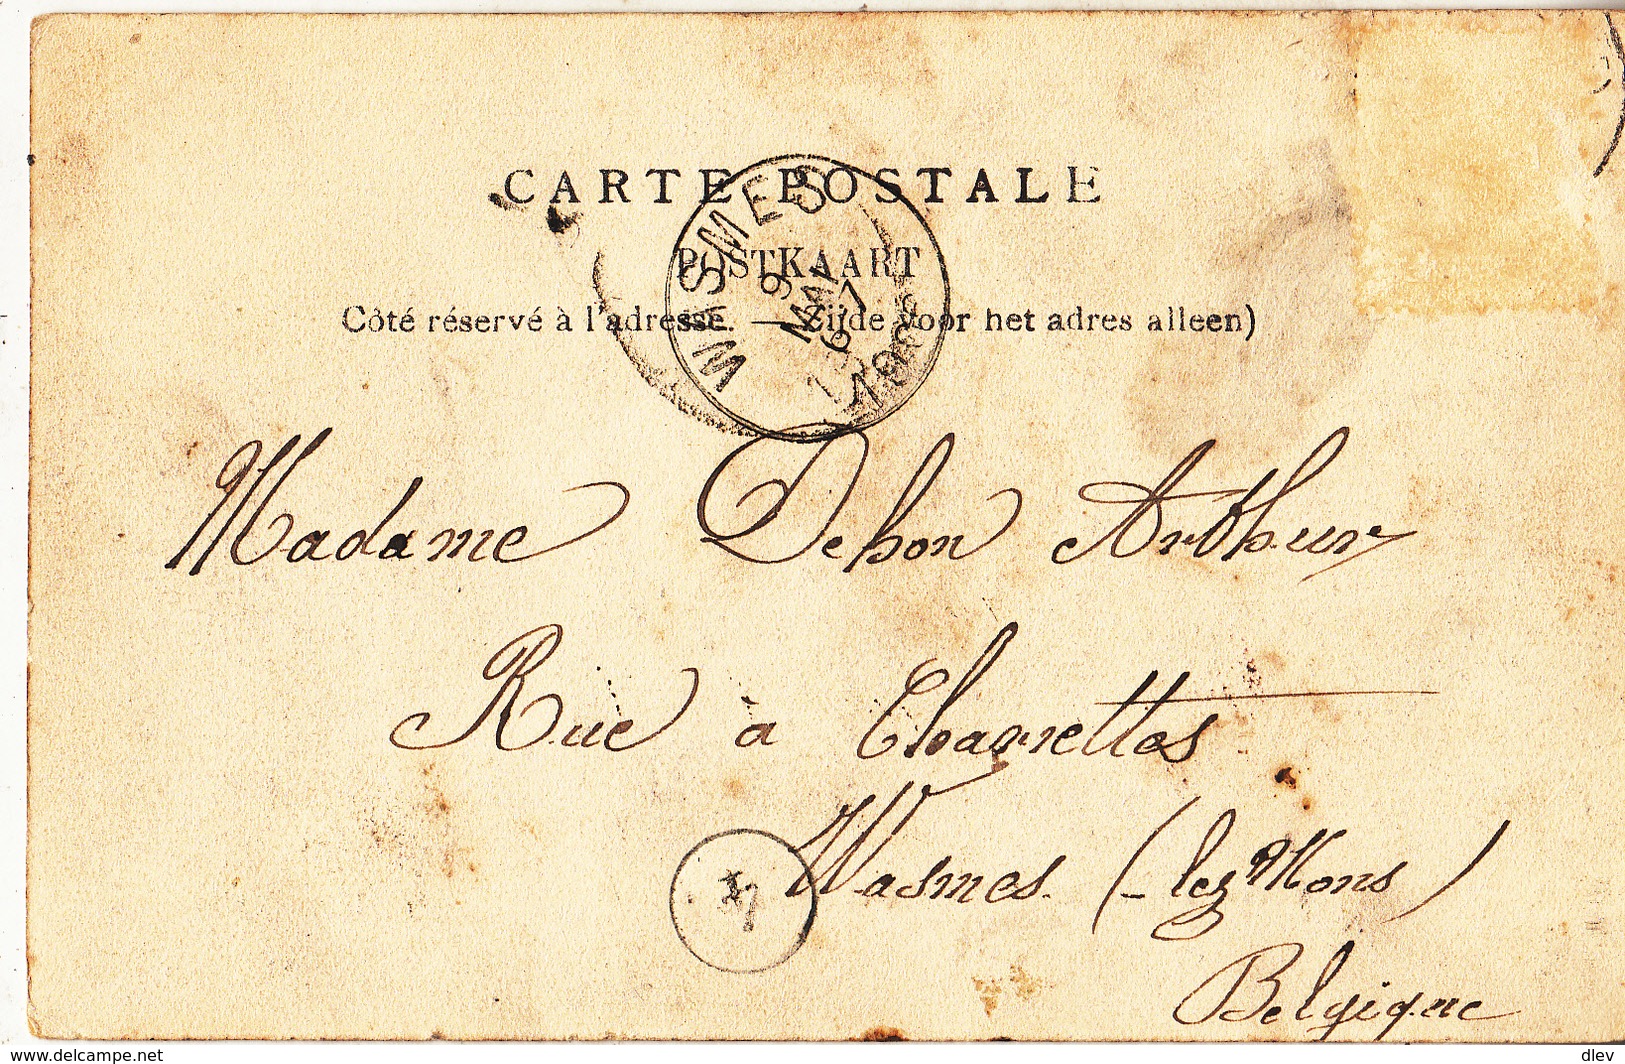 CARTE POSTALE
POSTKAART
Côté réservé à l'adresse. — Zijde voor het adres alleen)
WASMES
9
MAI
Madame Dehon Arthur
Rue à Charrettes
Wasmes (-lez Mons)
Belgique
delcampe.net
dlev